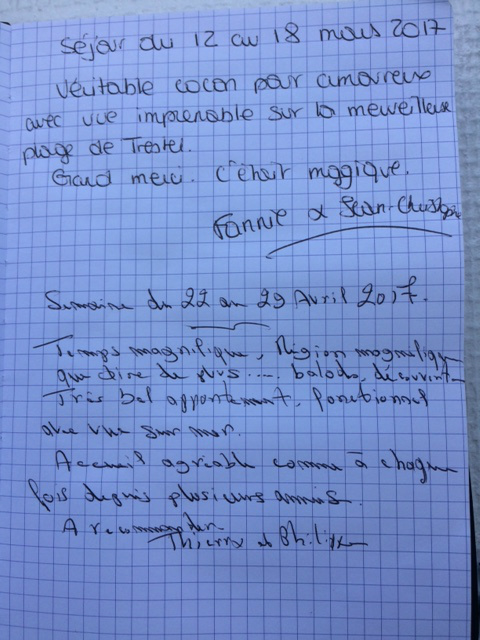 Séjour du 12 au 18 mars 2017
Véritable cocon pour amoureux
avec vue imprenable sur la merveilleuse
plage de Trestel.
Grand merci. C'était magique.
Fannie & Jean-Christophe
Semaine du 22 au 29 Avril 2017.
Temps magnifique, Région magnifique
que dire de plus .... balade, découverte
Très bel appartement, fonctionnel
avec vue sur mer.
Accueil agréable comme à chaque
fois depuis plusieurs années.
A recommander
Thierry et Philippe